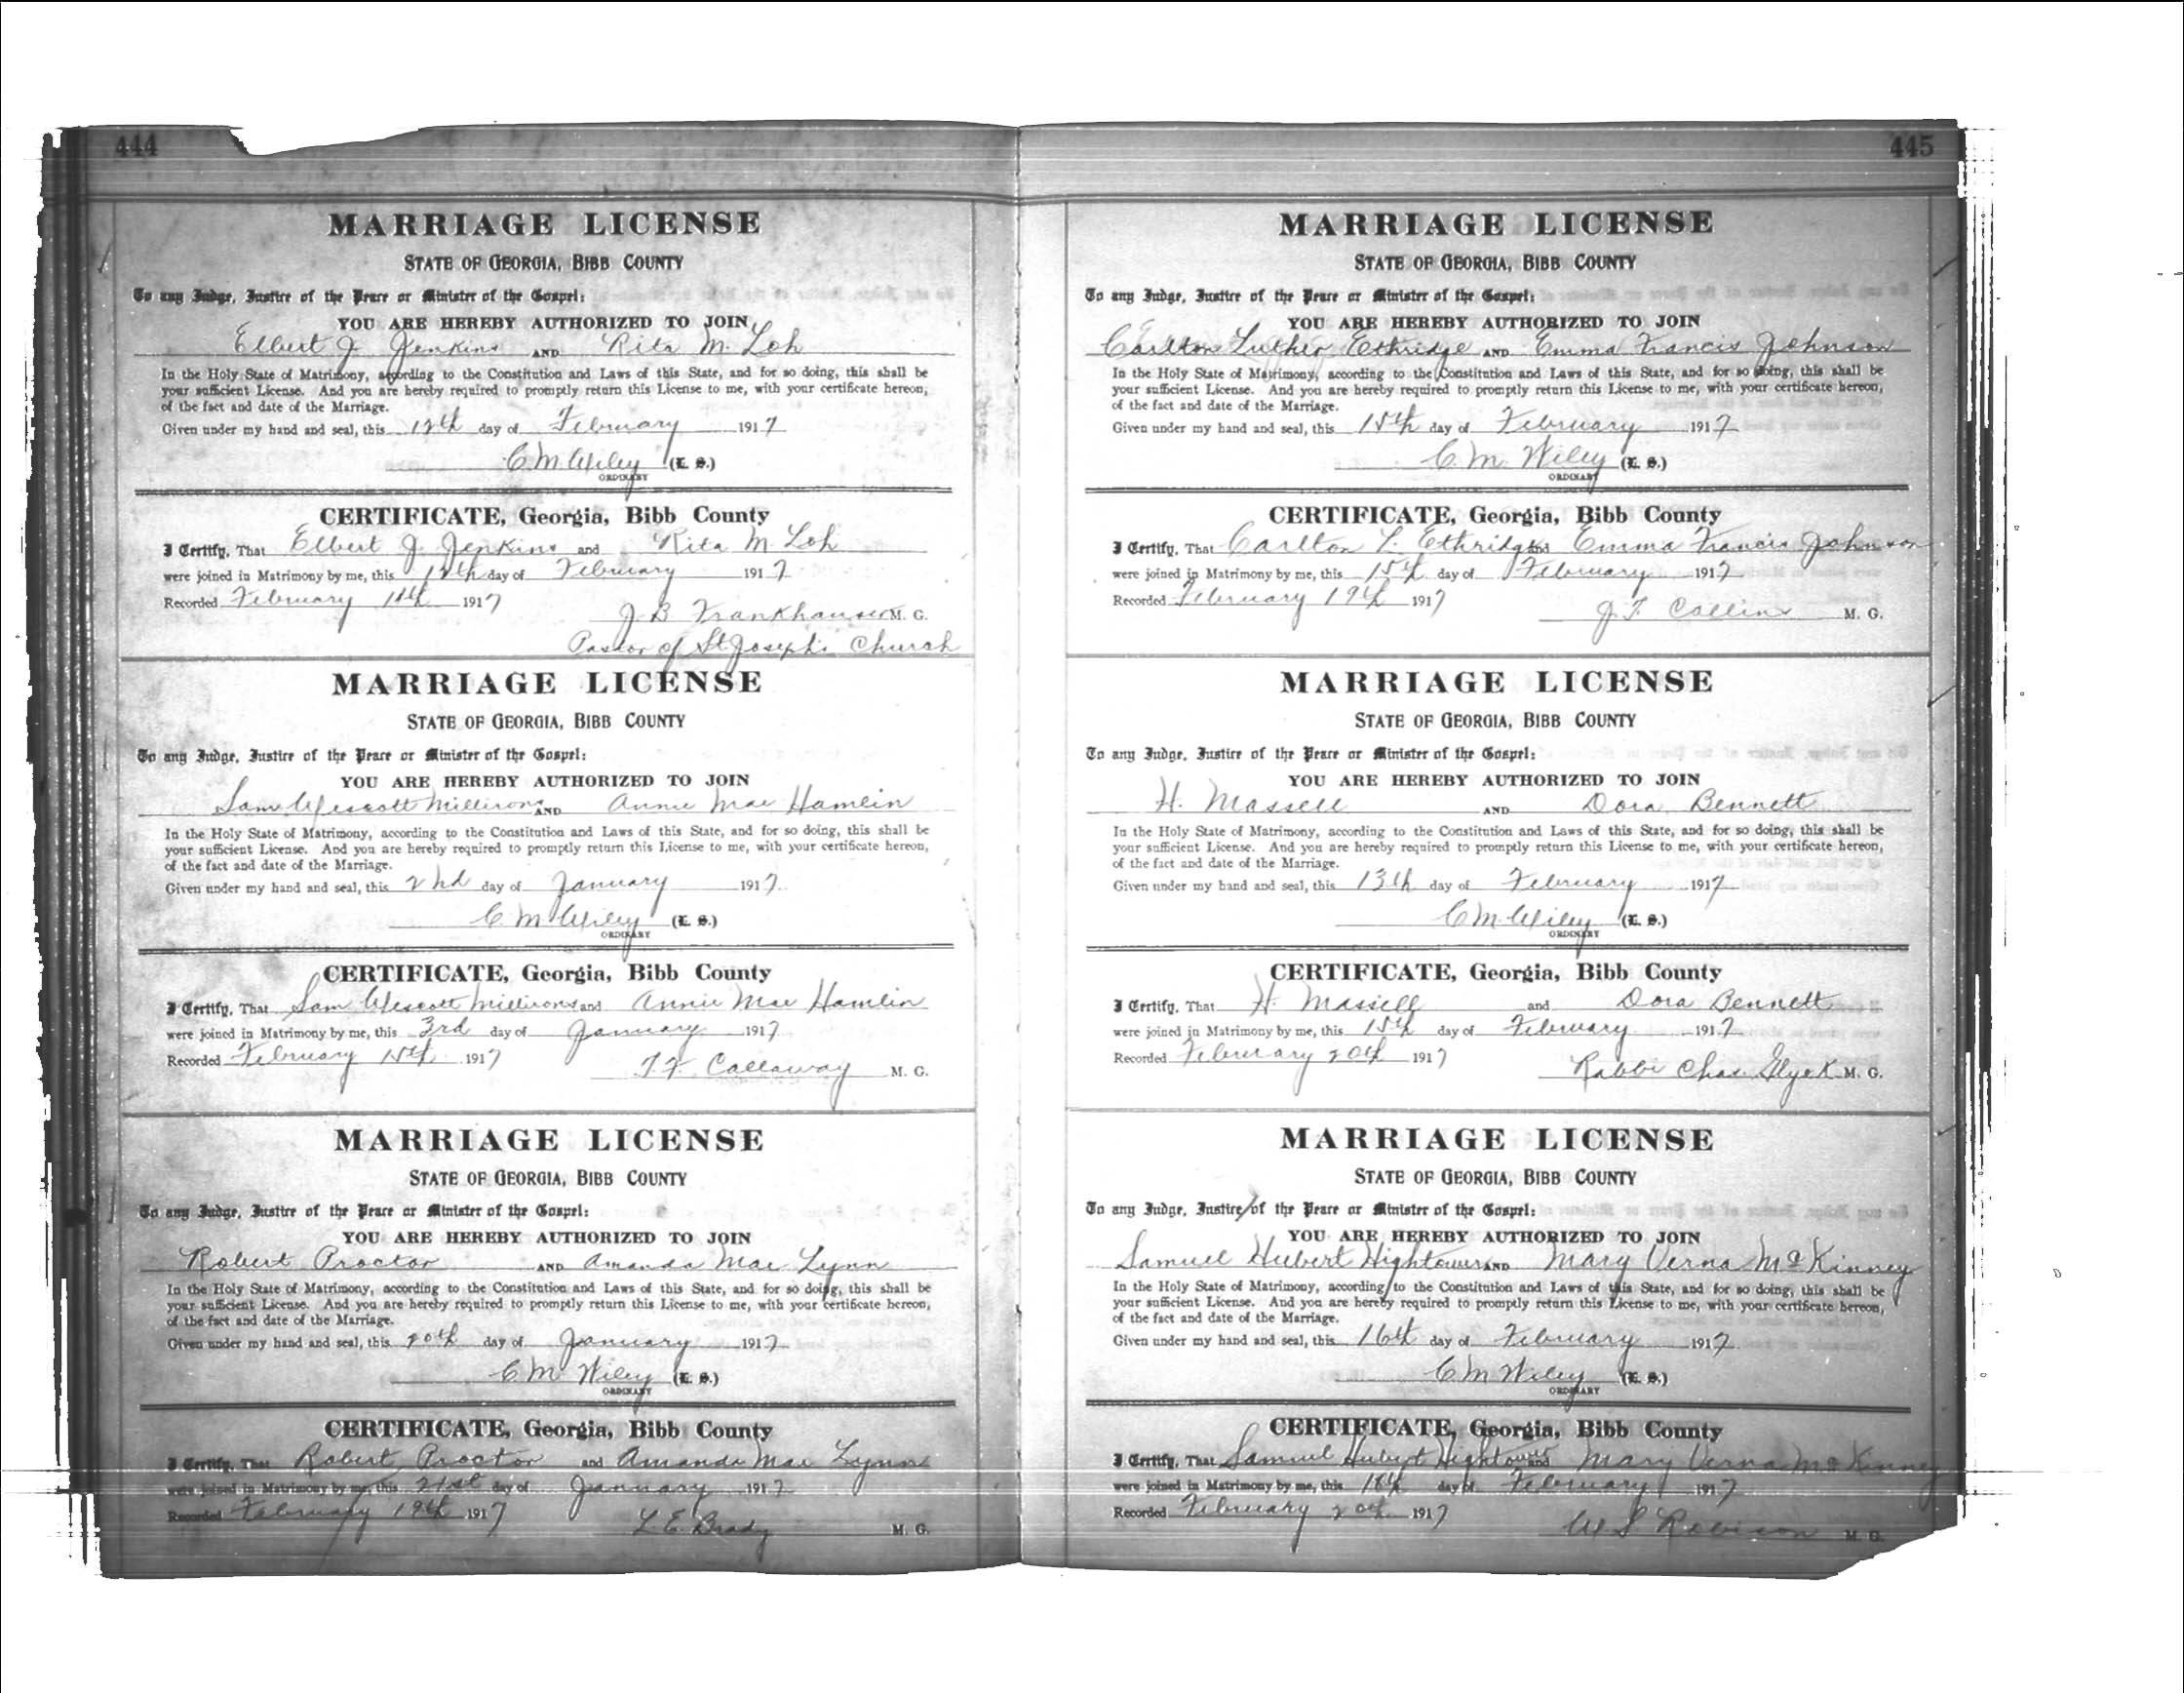 444
MARRIAGE LICENSE
STATE OF GEORGIA, BIBB COUNTY
To any Judge, Justice of the Peace or Minister of the Gospel:
YOU ARE HEREBY AUTHORIZED TO JOIN
Elbert J. Jenkins AND Rita M. Loh
In the Holy State of Matrimony, according to the Constitution and Laws of this State, and for so doing, this shall be
your sufficient License. And you are hereby required to promptly return this License to me, with your certificate hereon,
of the fact and date of the Marriage.
Given under my hand and seal, this 12th day of February 1917
C. M. Wiley (L. S.)
ORDINARY
CERTIFICATE, Georgia, Bibb County
I Certify, That Elbert J. Jenkins and Rita M Loh
were joined in Matrimony by me, this 12th day of February 1917
Recorded February 1917
J B Frankhauser M. G.
Pastor of St Joseph's Church
MARRIAGE LICENSE
STATE OF GEORGIA, BIBB COUNTY
To any Judge, Justice of the Peace or Minister of the Gospel:
YOU ARE HEREBY AUTHORIZED TO JOIN
Sam Wescott Millirons AND Annie Mae Hamlin
In the Holy State of Matrimony, according to the Constitution and Laws of this State, and for so doing, this shall be
your sufficient License. And you are hereby required to promptly return this License to me, with your certificate hereon,
of the fact and date of the Marriage.
Given under my hand and seal, this 2nd day of January 1917
C M Wiley (L. S.)
ORDINARY
CERTIFICATE, Georgia, Bibb County
I Certify, That Sam Wescott Millirons and Annie Mae Hamlin
were joined in Matrimony by me, this 3rd day of January 1917
Recorded February 15th 1917
T. F. Callaway M. G.
MARRIAGE LICENSE
STATE OF GEORGIA, BIBB COUNTY
To any Judge, Justice of the Peace or Minister of the Gospel:
YOU ARE HEREBY AUTHORIZED TO JOIN
Robert Proctor AND Amanda Mae Lynn
In the Holy State of Matrimony, according to the Constitution and Laws of this State, and for so doing, this shall be
your sufficient License. And you are hereby required to promptly return this License to me, with your certificate hereon,
of the fact and date of the Marriage.
Given under my hand and seal, this 20th day of January 1917
C. M. Wiley (L. S.)
ORDINARY
CERTIFICATE, Georgia, Bibb County
I Certify, That Robert Proctor and Amanda Mae Lynn
were joined in Matrimony by me, this 21st day of January 1917
Recorded February 19th 1917
L. E. Brady M. G.
445
MARRIAGE LICENSE
STATE OF GEORGIA, BIBB COUNTY
To any Judge, Justice of the Peace or Minister of the Gospel:
YOU ARE HEREBY AUTHORIZED TO JOIN
Carlton Luther Ethridge AND Emma Francis Johnson
In the Holy State of Matrimony, according to the Constitution and Laws of this State, and for so doing, this shall be
your sufficient License. And you are hereby required to promptly return this License to me, with your certificate hereon,
of the fact and date of the Marriage.
Given under my hand and seal, this 15th day of February 1917
C. M. Wiley (L. S.)
ORDINARY
CERTIFICATE, Georgia, Bibb County
I Certify, That Carlton L. Ethridge and Emma Francis Johnson
were joined in Matrimony by me, this 15th day of February 1917
Recorded February 19th 1917
J. F. Collins M. G.
MARRIAGE LICENSE
STATE OF GEORGIA, BIBB COUNTY
To any Judge, Justice of the Peace or Minister of the Gospel:
YOU ARE HEREBY AUTHORIZED TO JOIN
H. Massell AND Dora Bennett
In the Holy State of Matrimony, according to the Constitution and Laws of this State, and for so doing, this shall be
your sufficient License. And you are hereby required to promptly return this License to me, with your certificate hereon,
of the fact and date of the Marriage.
Given under my hand and seal, this 13th day of February 1917
C M Wiley (L. S.)
ORDINARY
CERTIFICATE, Georgia, Bibb County
I Certify, That H. Massell and Dora Bennett
were joined in Matrimony by me, this 15th day of February 1917
Recorded February 20th 1917
Rabbi Chas. Glyck M. G.
MARRIAGE LICENSE
STATE OF GEORGIA, BIBB COUNTY
To any Judge, Justice of the Peace or Minister of the Gospel:
YOU ARE HEREBY AUTHORIZED TO JOIN
Samuel Hubert Hightower AND Mary Verna McKinney
In the Holy State of Matrimony, according to the Constitution and Laws of this State, and for so doing, this shall be
your sufficient License. And you are hereby required to promptly return this License to me, with your certificate hereon,
of the fact and date of the Marriage.
Given under my hand and seal, this 16th day of February 1917
C M Wiley (L. S.)
ORDINARY
CERTIFICATE, Georgia, Bibb County
I Certify, That Samuel Hubert Hightower and Mary Verna McKinney
were joined in Matrimony by me, this day of February 1917
Recorded February 20th 1917
W S Robison M. G.